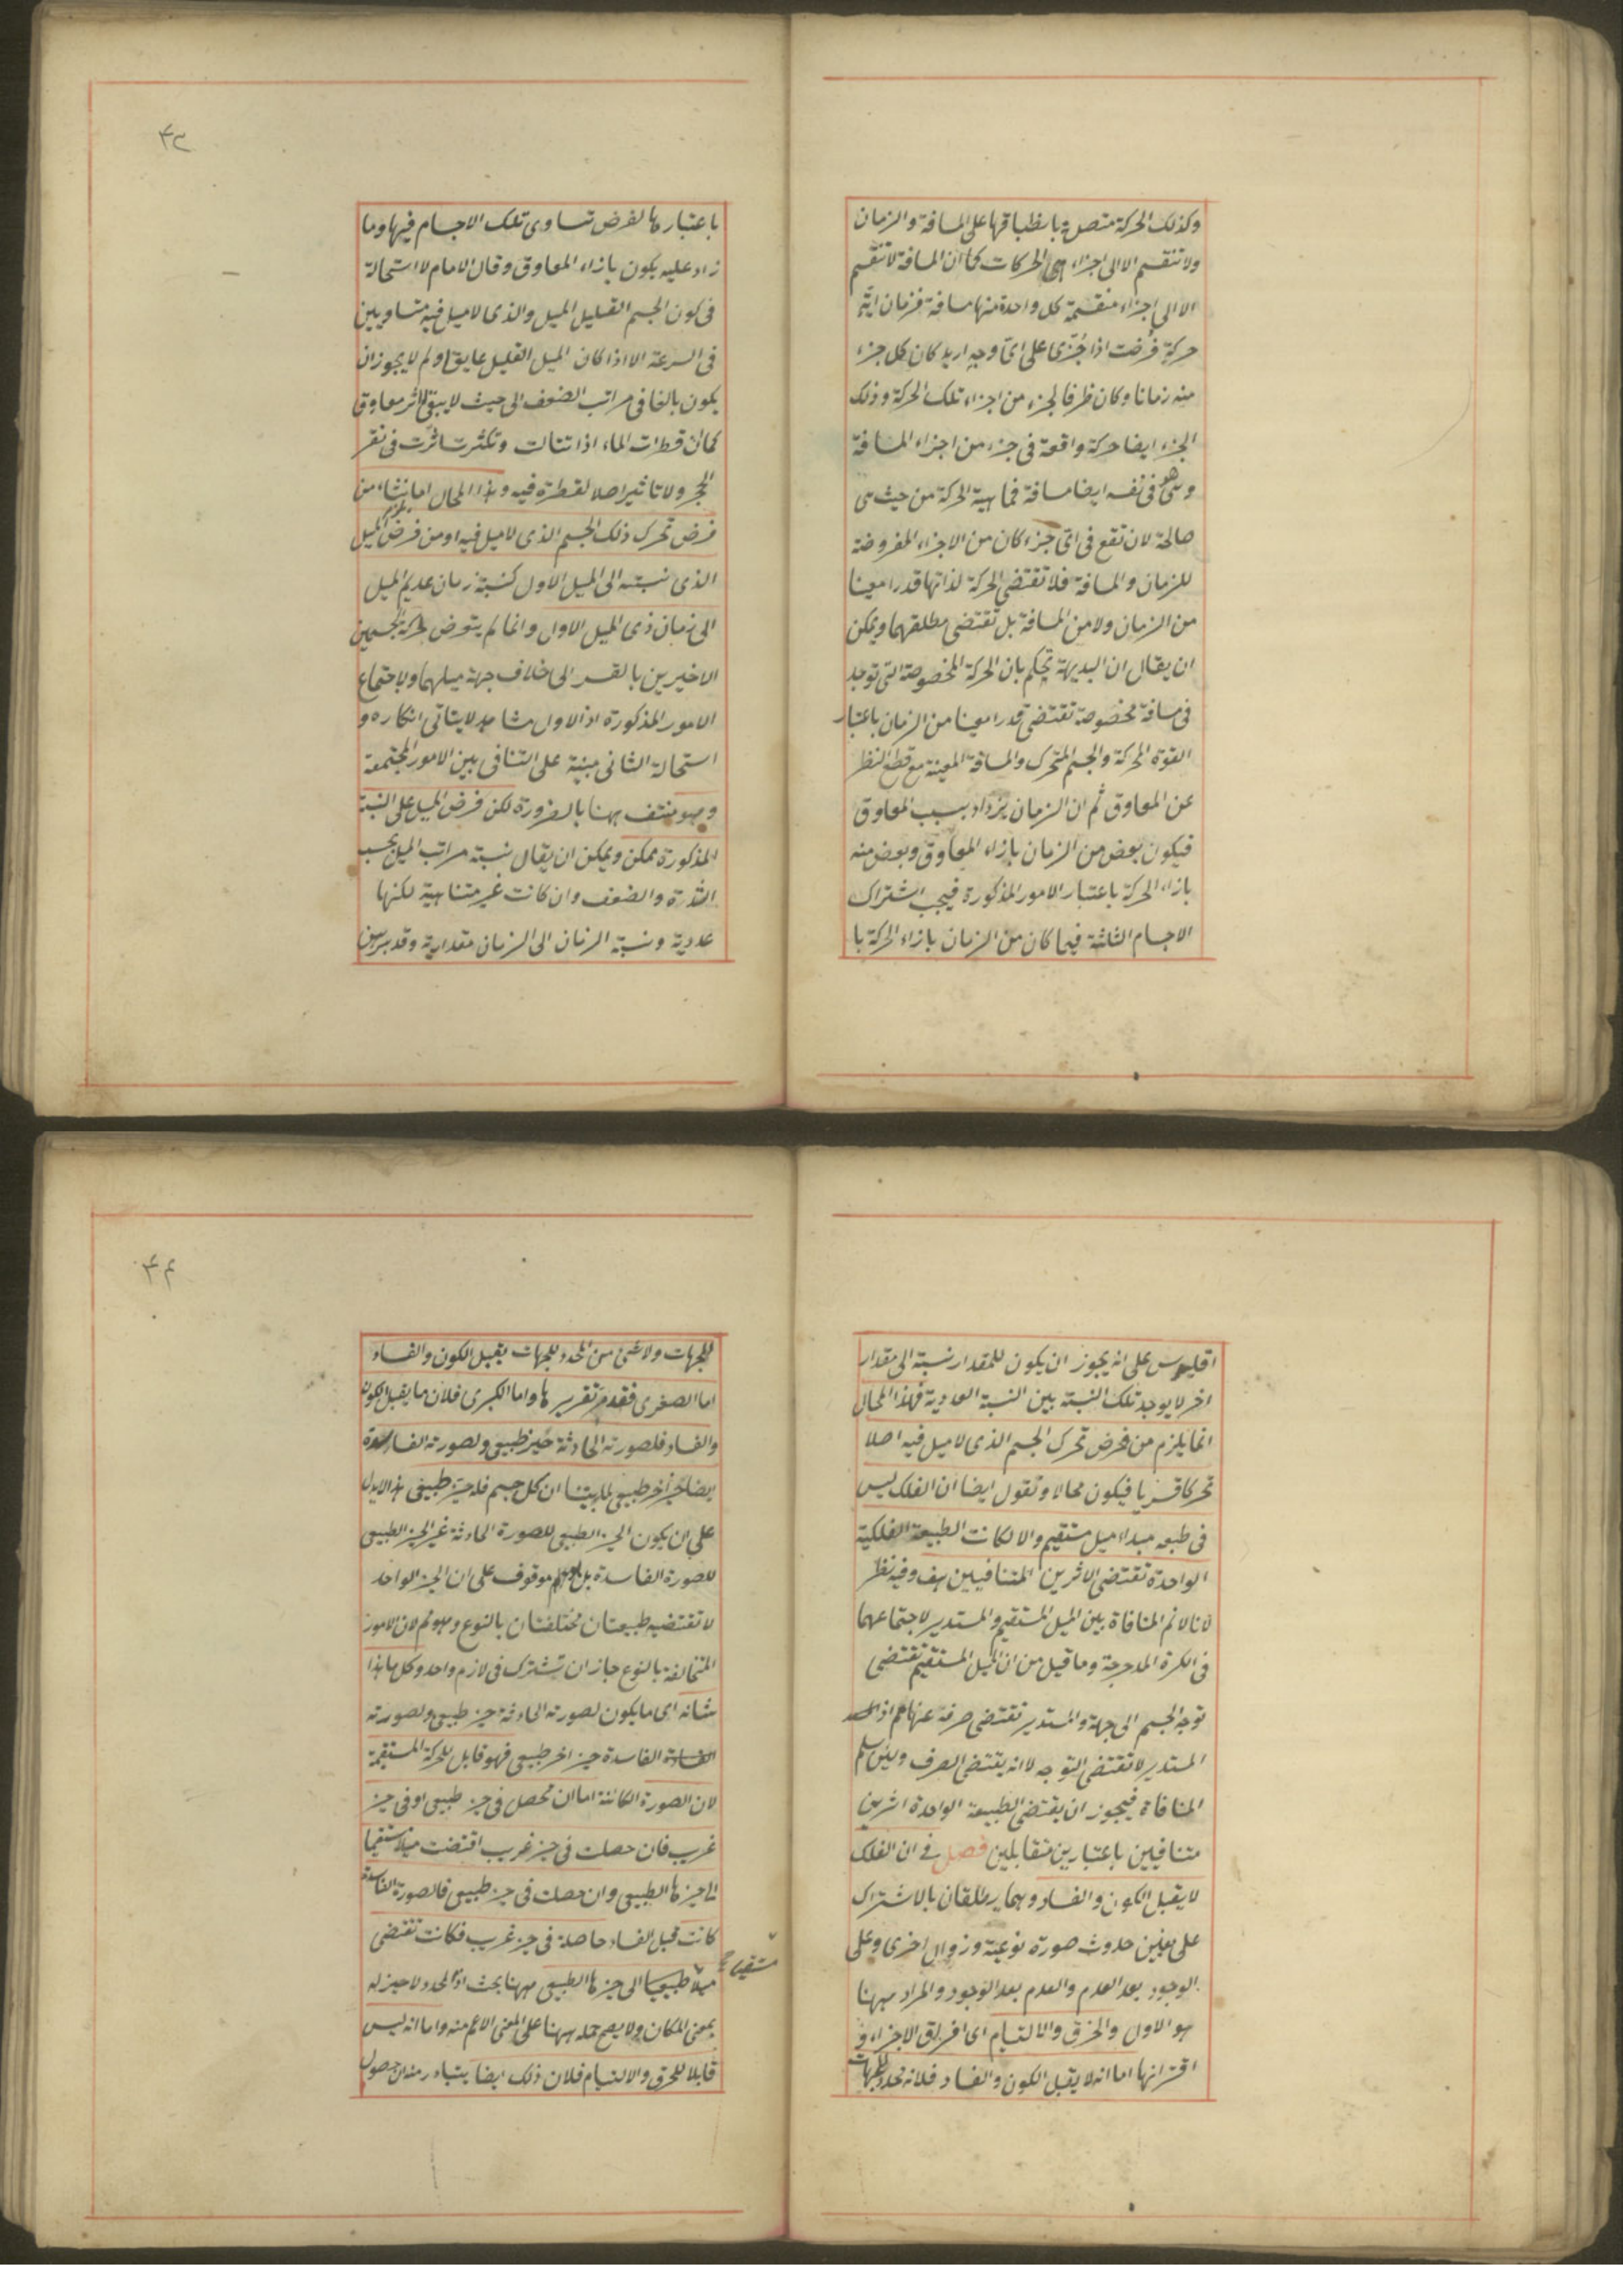 وكذلك الحركة متصلة بانطباقها على المسافة والزمان
ولا تنقسم الا الى اجزاء هى الحركات كما ان المسافة لا تنقسم
الا الى اجزاء منقسمة كل واحدة منها مسافة فزمان اية
حركة فرضت اذا جزى على اى وجه اريد كان كل جزء
منه زمانا وكان ظرفا لجزء من اجزاء تلك الحركة وذلك
الجزء ايضا حركة واقعة فى جزء من اجزاء المسافة
وهو فى نفسه ايضا مسافة فماهية الحركة من حيث هى
صالحة لان تقع فى اى جزء كان من الاجزاء المفروضة
للزمان والمسافة فلا تقتضى الحركة لذاتها قدرا معينا
من الزمان ولا من المسافة بل تقتضى مطلقهما ويمكن
ان يقال ان البديهة تحكم بان الحركة المخصوصة التى توجد
فى مسافة مخصوصة تقتضى قدرا معينا من الزمان باعتبار
القوة المحركة والجسم المتحرك والمسافة المعينة مع قطع النظر
عن المعاوق ثم ان الزمان يزداد بسبب المعاوق
فيكون بعض من الزمان بازاء المعاوق وبعض منه
بازاء الحركة باعتبار الامور المذكورة فيجب اشتراك
الاجسام الثلثة فيما كان من الزمان بازاء الحركة با
۴۳
باعتبارها لفرض تساوى تلك الاجسام فيها وما
زاد عليه يكون بازاء المعاوق وقال الامام لا استحالة
فى كون الجسم القليل الميل والذى لا ميل فيه متساويين
فى السرعة الا اذا كان الميل القليل عايقا ولم لا يجوز ان
يكون بالغا فى مراتب الضعف الى حيث لا يبقى له اثر معاوق
كما ان قطرات الماء اذا تتالت وتكثرت اثرت فى نقر
الحجر ولا تاثير اصلا لقطرة فيه وهذا المحال اما نشاء من
فرض تحرك ذلك الجسم الذى لا ميل فيه او من فرض الميل
الذى نسبته الى الميل الاول كنسبة زمان عديم الميل
الى زمان ذى الميل الاول وانما لم يتعرض لحركة الجسمين
الاخيرين بالقسر الى خلاف جهة ميلهما ولاجتماع
الامور المذكورة اذ الاول مشاهد لا يتاتى انكاره و
استحالة الثانى مبنية على التنافى بين الامور المجتمعة
وهو منتف ههنا بالضرورة لكن فرض الميل على النسبة
المذكورة ممكن ويمكن ان يقال نسبة مراتب الميل بحسب
الشدة والضعف وان كانت غير متناهية لكنها
عددية ونسبة الزمان الى الزمان مقدارية وقد برهن
اقليدس على انه يجوز ان يكون للمقدار نسبة الى مقدار
اخر لا يوجد تلك النسبة بين النسبة العددية فهذا المحال
انما يلزم من فرض تحرك الجسم الذى لا ميل فيه اصلا
تحركا قسريا فيكون محالا ونقول ايضا ان الفلك ليس
فى طبعه مبداء ميل مستقيم والا لكانت الطبيعة الفلكية
الواحدة تقتضى الاثرين المتنافيين هف وفيه نظر
لانا لا نم المنافاة بين الميل المستقيم والمستدير لاجتماعهما
فى الكرة المدحرجة وما قيل من ان الميل المستقيم تقتضى
توجه الجسم الى جهة والمستدير تقتضى صرفه عنها مم اذ
المستدير لا تقتضى التوجه لا انه يقتضى الصرف ولئن سلم
المنافاة فيجوز ان يقتضى الطبيعة الواحدة اثرين
متنافيين باعتبارين متقابلين فصل فى ان الفلك
لا يقبل الكون والفساد وهما يطلقان بالاشتراك
على معنيين حدوث صورة نوعية وزوال اخرى وعلى
الوجود بعد العدم والعدم بعد الوجود والمراد ههنا
هو الاول والخرق والالتيام اى افتراق الاجزاء و
اقترانها اما انه لا يقبل الكون والفساد فلانه محدد للجهات
۴۴
للجهات ولا شئ من المحدد للجهات يقبل الكون والفساد
اما الصغرى فقد مر تقريرها واما الكبرى فلان ما يقبل الكون
والفساد فلصورته الحادثة حيز طبيعى ولصورته الفاسدة
ايضا حيز اخر طبيعى لما بينا ان كل جسم فله حيز طبيعى هذا لا يدل
على ان يكون الحيز الطبيعى للصورة الحادثة غير الحيز الطبيعى
للصورة الفاسدة بل هو موقوف على ان الحيز الواحد
لا تقتضيه طبيعتان مختلفتان بالنوع وهو مم لان الامور
المتخالفة بالنوع جاز ان تشترك فى لازم واحد وكل ما هذا
شانه اى ما يكون لصورته الحادثة حيز طبيعى ولصورته
الفاسدة حيز اخر طبيعى فهو قابل للحركة المستقيمة
لان الصورة الكائنة اما ان تحصل فى حيز طبيعى او فى حيز
غريب فان حصلت فى حيز غريب اقتضت ميلا مستقيما
الى حيزها الطبيعى وان حصلت فى حيز طبيعى فالصورة الفاسدة
كانت قبل الفساد حاصلة فى حيز غريب فكانت تقتضى
ميلا طبيعيا الى حيزها الطبيعى ههنا بحث اذ المحدد لا حيز له
مستقيما
بمعنى المكان ولا يصح حمله ههنا على المعنى الاعم منه واما انه ليس
قابلا للخرق والالتيام فلان ذلك ايضا يتبادر منه ان حصول